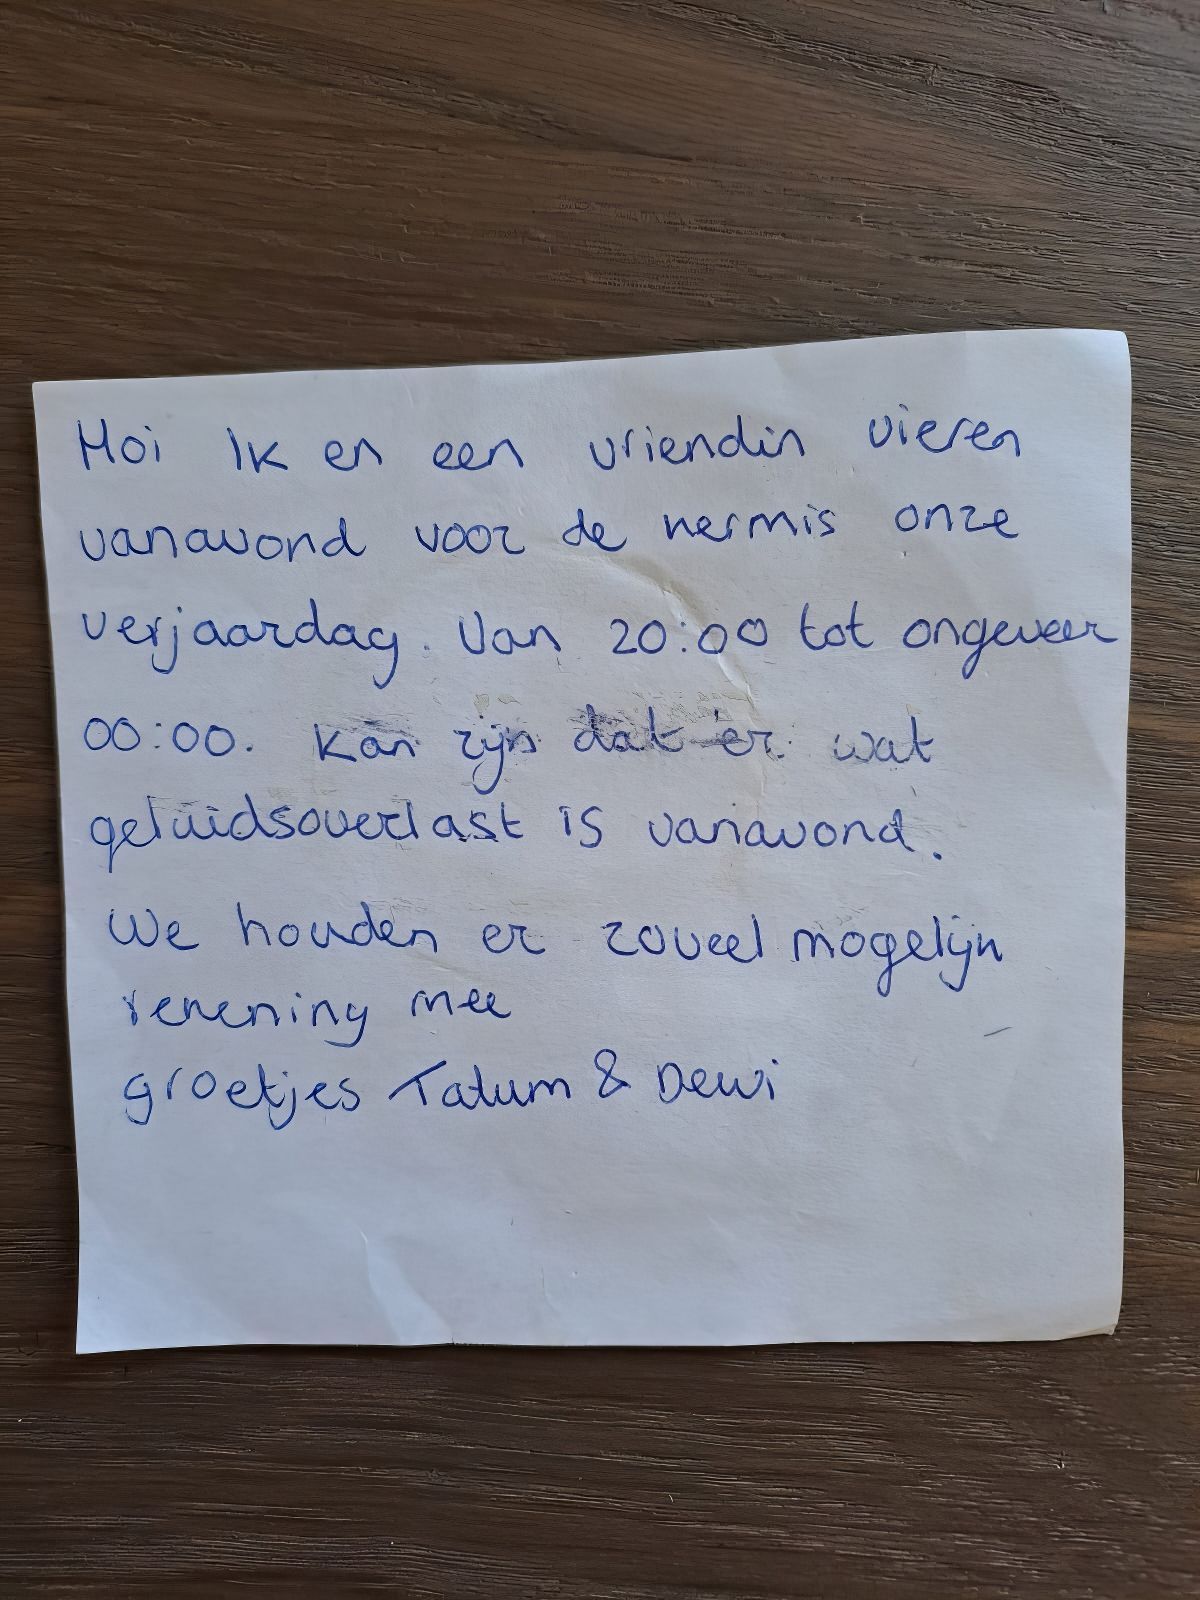 Hoi Ik en een vriendin vieren
vanavond voor de kermis onze
verjaardag. Van 20:00 tot ongeveer
00:00. kan zijn dat er wat
geluidsoverlast is vanavond.
We houden er zoveel mogelijk
rekening mee
groetjes Tatum & Dewi